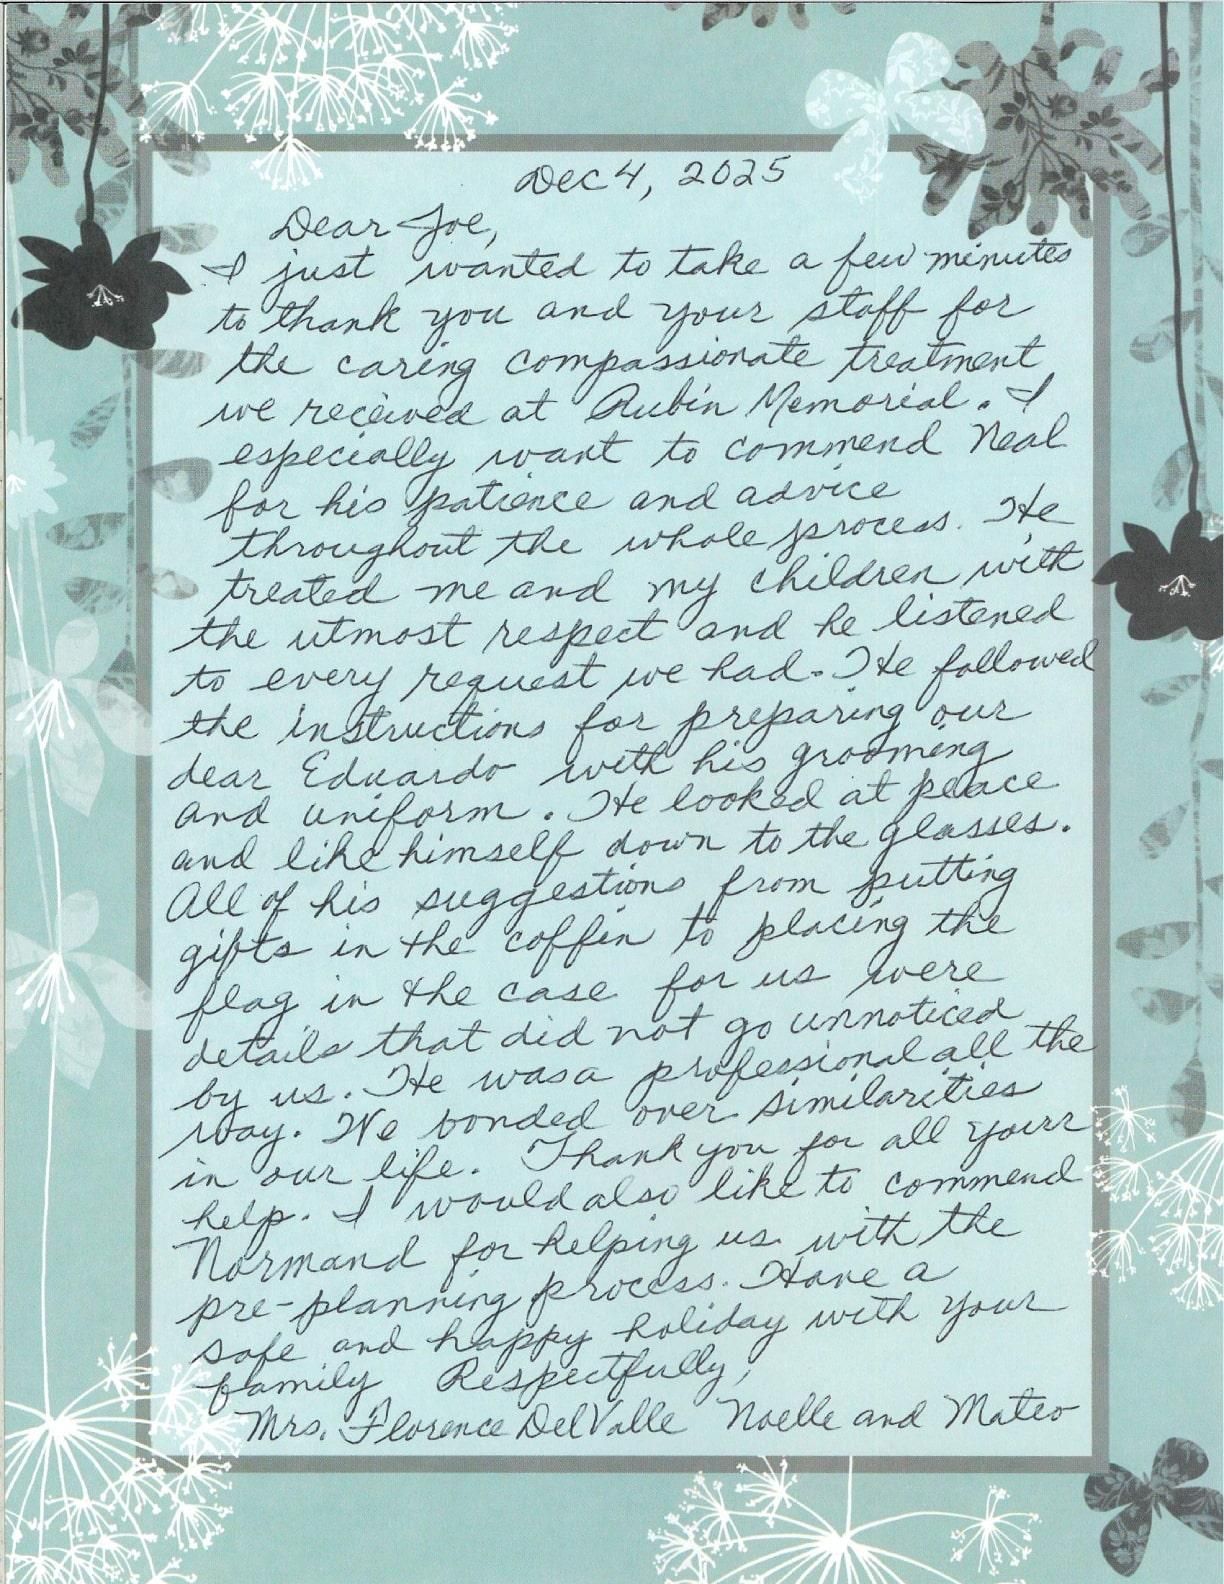 Dec 4, 2025
Dear Joe,
I just wanted to take a few minutes
to thank you and your staff for
the caring compassionate treatment
we received at Rubin Memorial. I
especially want to commend Neal
for his patience and advice
throughout the whole process. He
treated me and my children with
the utmost respect and he listened
to every request we had. He followed
the instructions for preparing our
dear Eduardo with his grooming
and uniform. He looked at peace
and like himself down to the glasses.
All of his suggestions from putting
gifts in the coffin to placing the
flag in the case for us were
details that did not go unnoticed
by us. He was a professional all the
way. We bonded over similarities
in our life. Thank you for all your
help. I would also like to commend
Normand for helping us with the
pre-planning process. Have a
safe and happy holiday with your
family Respectfully,
Mrs. Florence DelValle Noelle and Mateo